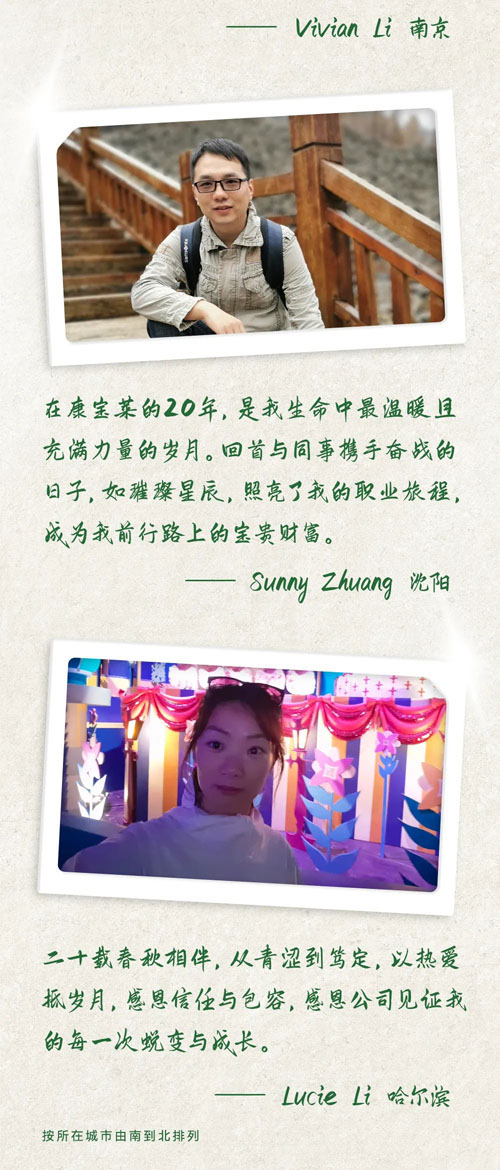 —— Vivian Li 南京
在康宝莱的20年，是我生命中最温暖且
充满力量的岁月。回首与同事携手奋战的
日子，如璀璨星辰，照亮了我的职业旅程，
成为我前行路上的宝贵财富。
—— Sunny Zhuang 沈阳
二十载春秋相伴，从青涩到笃定，以热爱
抵岁月，感恩信任与包容，感恩公司见证我
的每一次蜕变与成长。
—— Lucie Li 哈尔滨
按所在城市由南到北排列